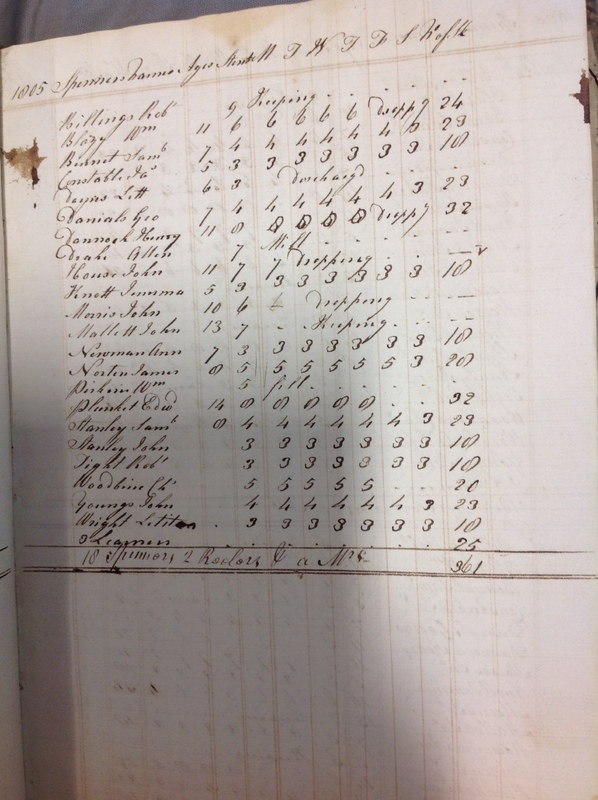 1805 Spinners Names Ages Stent M T W T F S No of Sk
Billings Robt 9 Keeping . . . . . .
Blazy Wm 11 6 6 6 6 6 droppg 24
Burnet Saml 7 4 4 4 4 4 4 3 23
Constable Jas 5 3 3 3 3 3 3 3 18
Deynes Lett 6 3 dischargd . . .
Danials Geo 7 4 4 4 4 4 4 3 23
Dannock Henry 11 8 8 8 8 8 dropg 32
Drake Allen 7 Mill . . . . . .
House John 11 7 7 dropping . . . —
Knott Jemima 5 3 3 3 3 3 3 3 18
Morris John 10 6 dropping . . —
Mallett John 13 7 - Keeping . . . —
Newman Ann 7 3 3 3 3 3 3 3 18
Norten James 8 5 5 5 5 5 5 3 28
Wm 5 . . . . . .
Plunket Edwd 14 8 8 8 8 8 . . 32
Stanley Saml 8 4 4 4 4 4 4 3 23
Stanley John 3 3 3 3 3 3 3 18
Tight Robt 3 3 3 3 3 3 3 18
Woodbine Chs 5 5 5 5 5 . . 20
Youngs John 4 4 4 4 4 4 3 23
Wright Letitia . 3 3 3 3 3 3 3 18
3 Learners . . . . . . . 25
18 Spinners 2 Reelers & a Mrs 361